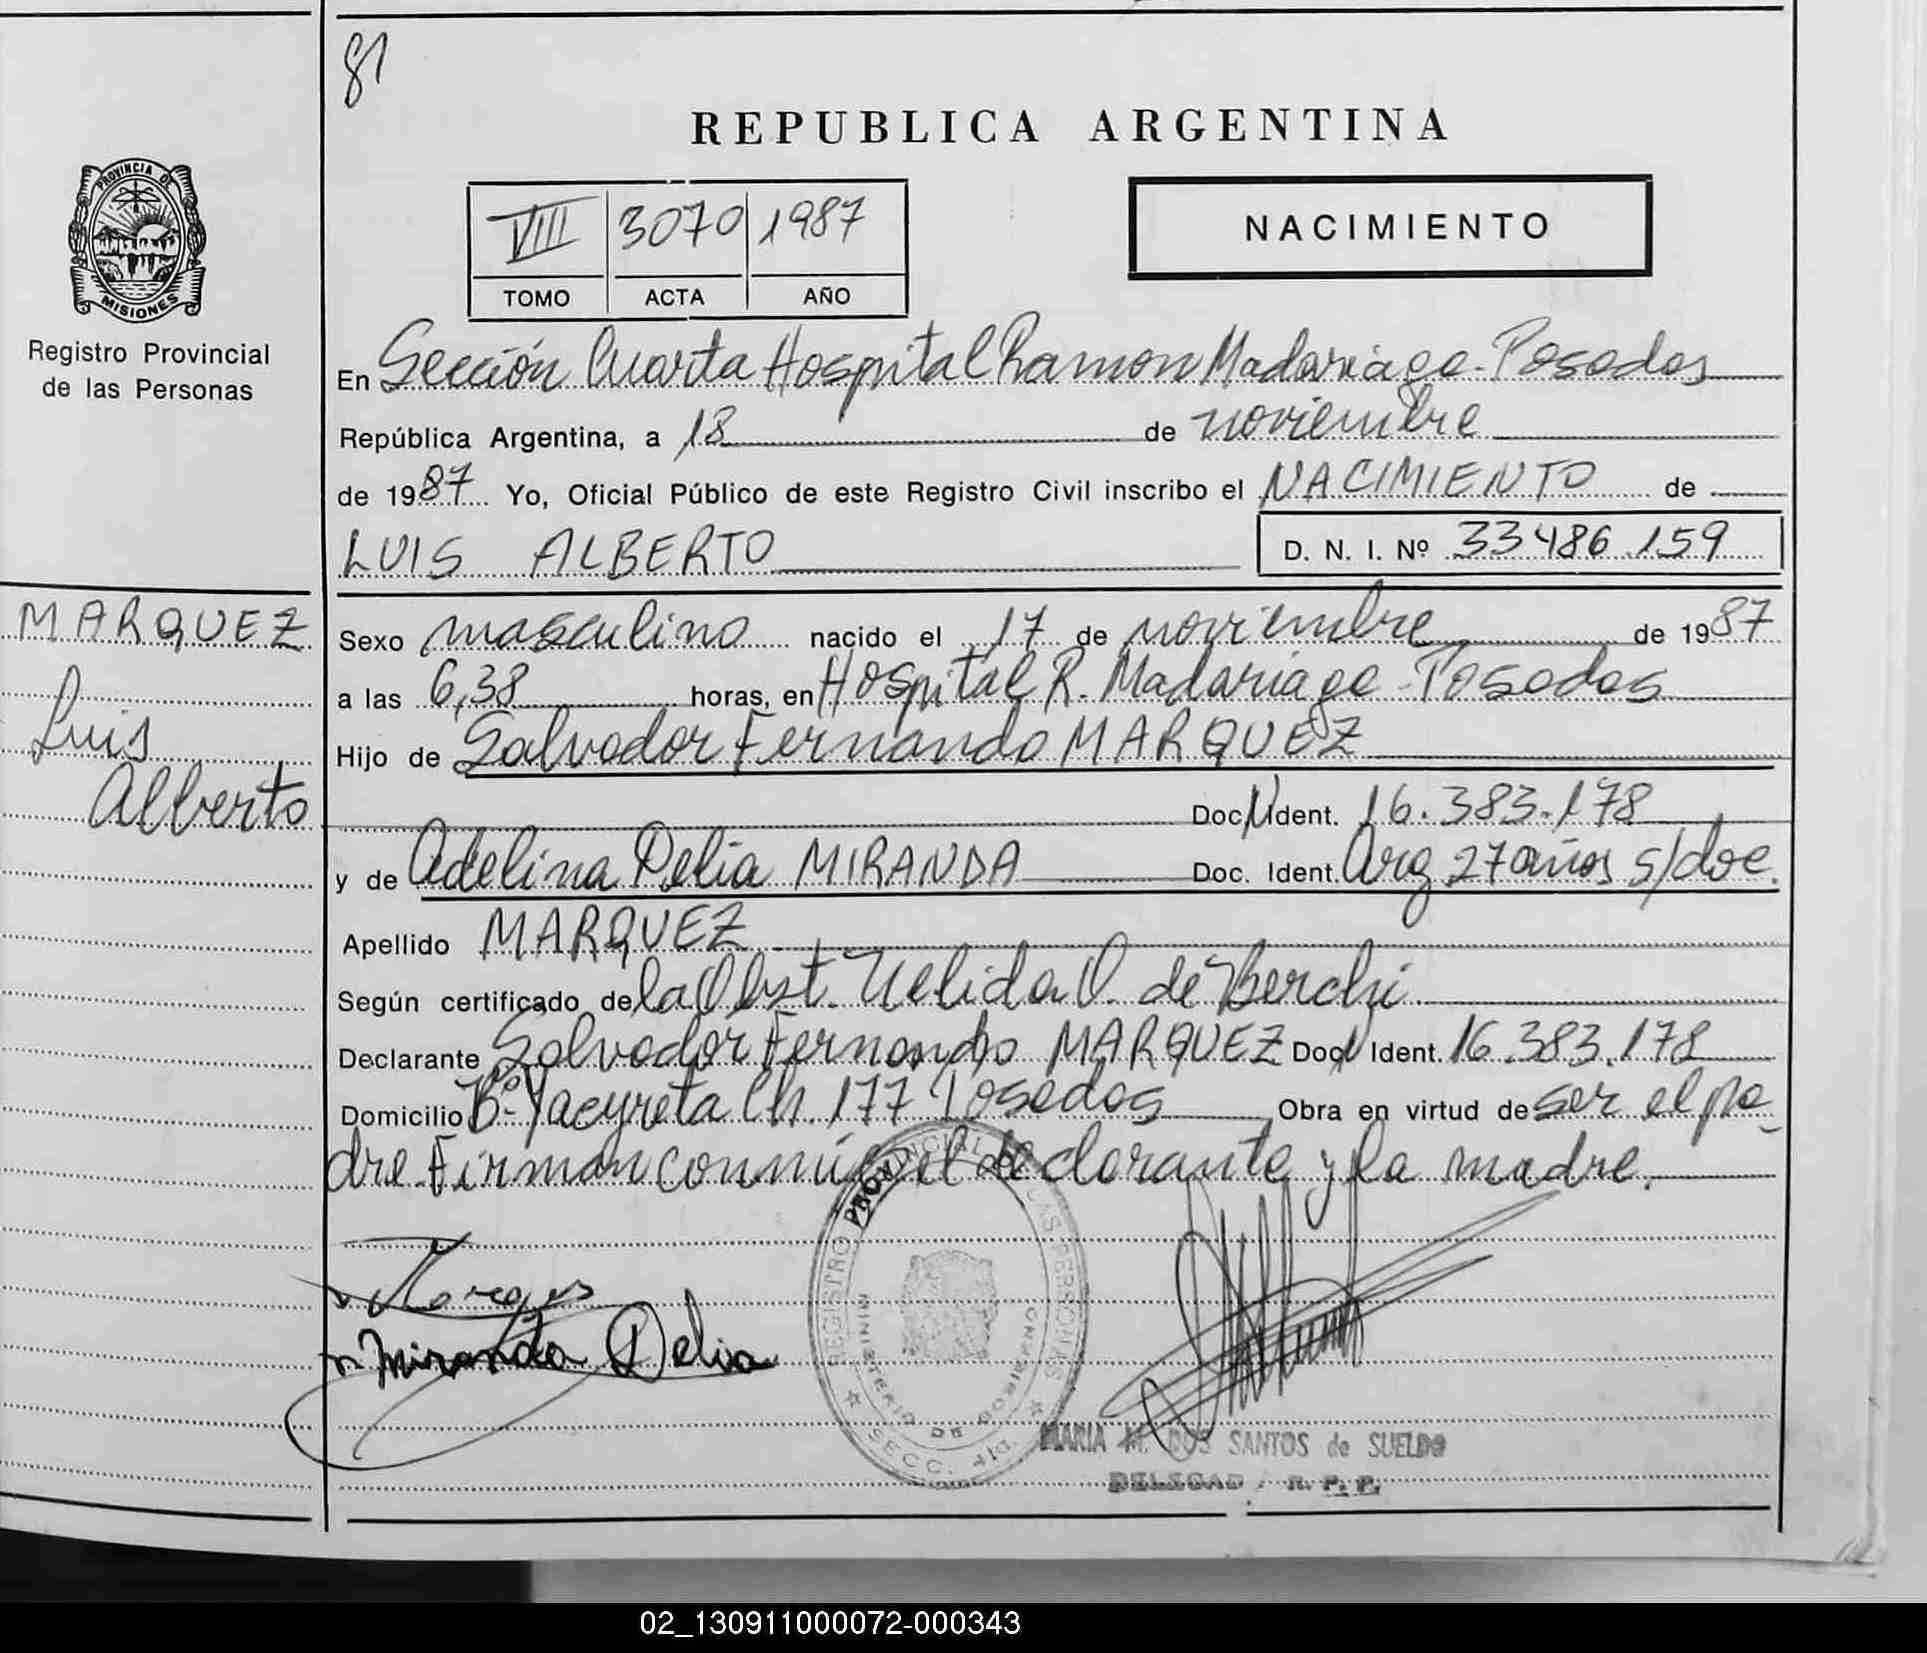 81
REPUBLICA ARGENTINA
PROVINCIA DE MISIONES
Registro Provincial
de las Personas
VIII 3070 1987
TOMO ACTA AÑO
NACIMIENTO
En Sección Cuarta Hospital Ramon Madariaga - Posadas
República Argentina, a 18 de noviembre
de 1987 Yo, Oficial Público de este Registro Civil inscribo el NACIMIENTO de
LUIS ALBERTO D. N. I. Nº 33486.159
MARQUEZ
Luis
Alberto
Sexo masculino nacido el 17 de noviembre de 1987
a las 6,38 horas, en Hospital R. Madariaga - Posadas
Hijo de Salvador Fernando MARQUEZ
Doc N Ident. 16.383.178
y de Adelina Delia MIRANDA Doc. Ident. Arg 27 años s/doc.
Apellido MARQUEZ
Según certificado de la Obst. Nelida O. de Berchi
Declarante Salvador Fernando MARQUEZ Doc N Ident. 16.383.178
Domicilio Bº Yacyreta Ch. 177 Posadas Obra en virtud de ser el pa-
dre. Firman conmigo el declarante y la madre.
Miranda Delia
REGISTRO PROVINCIAL DE LAS PERSONAS
MINISTERIO DE GOBIERNO
SECC. 4ta.
MARIA M. DOS SANTOS de SUELDO
DELEGAD. R. P. P.
02_130911000072-000343